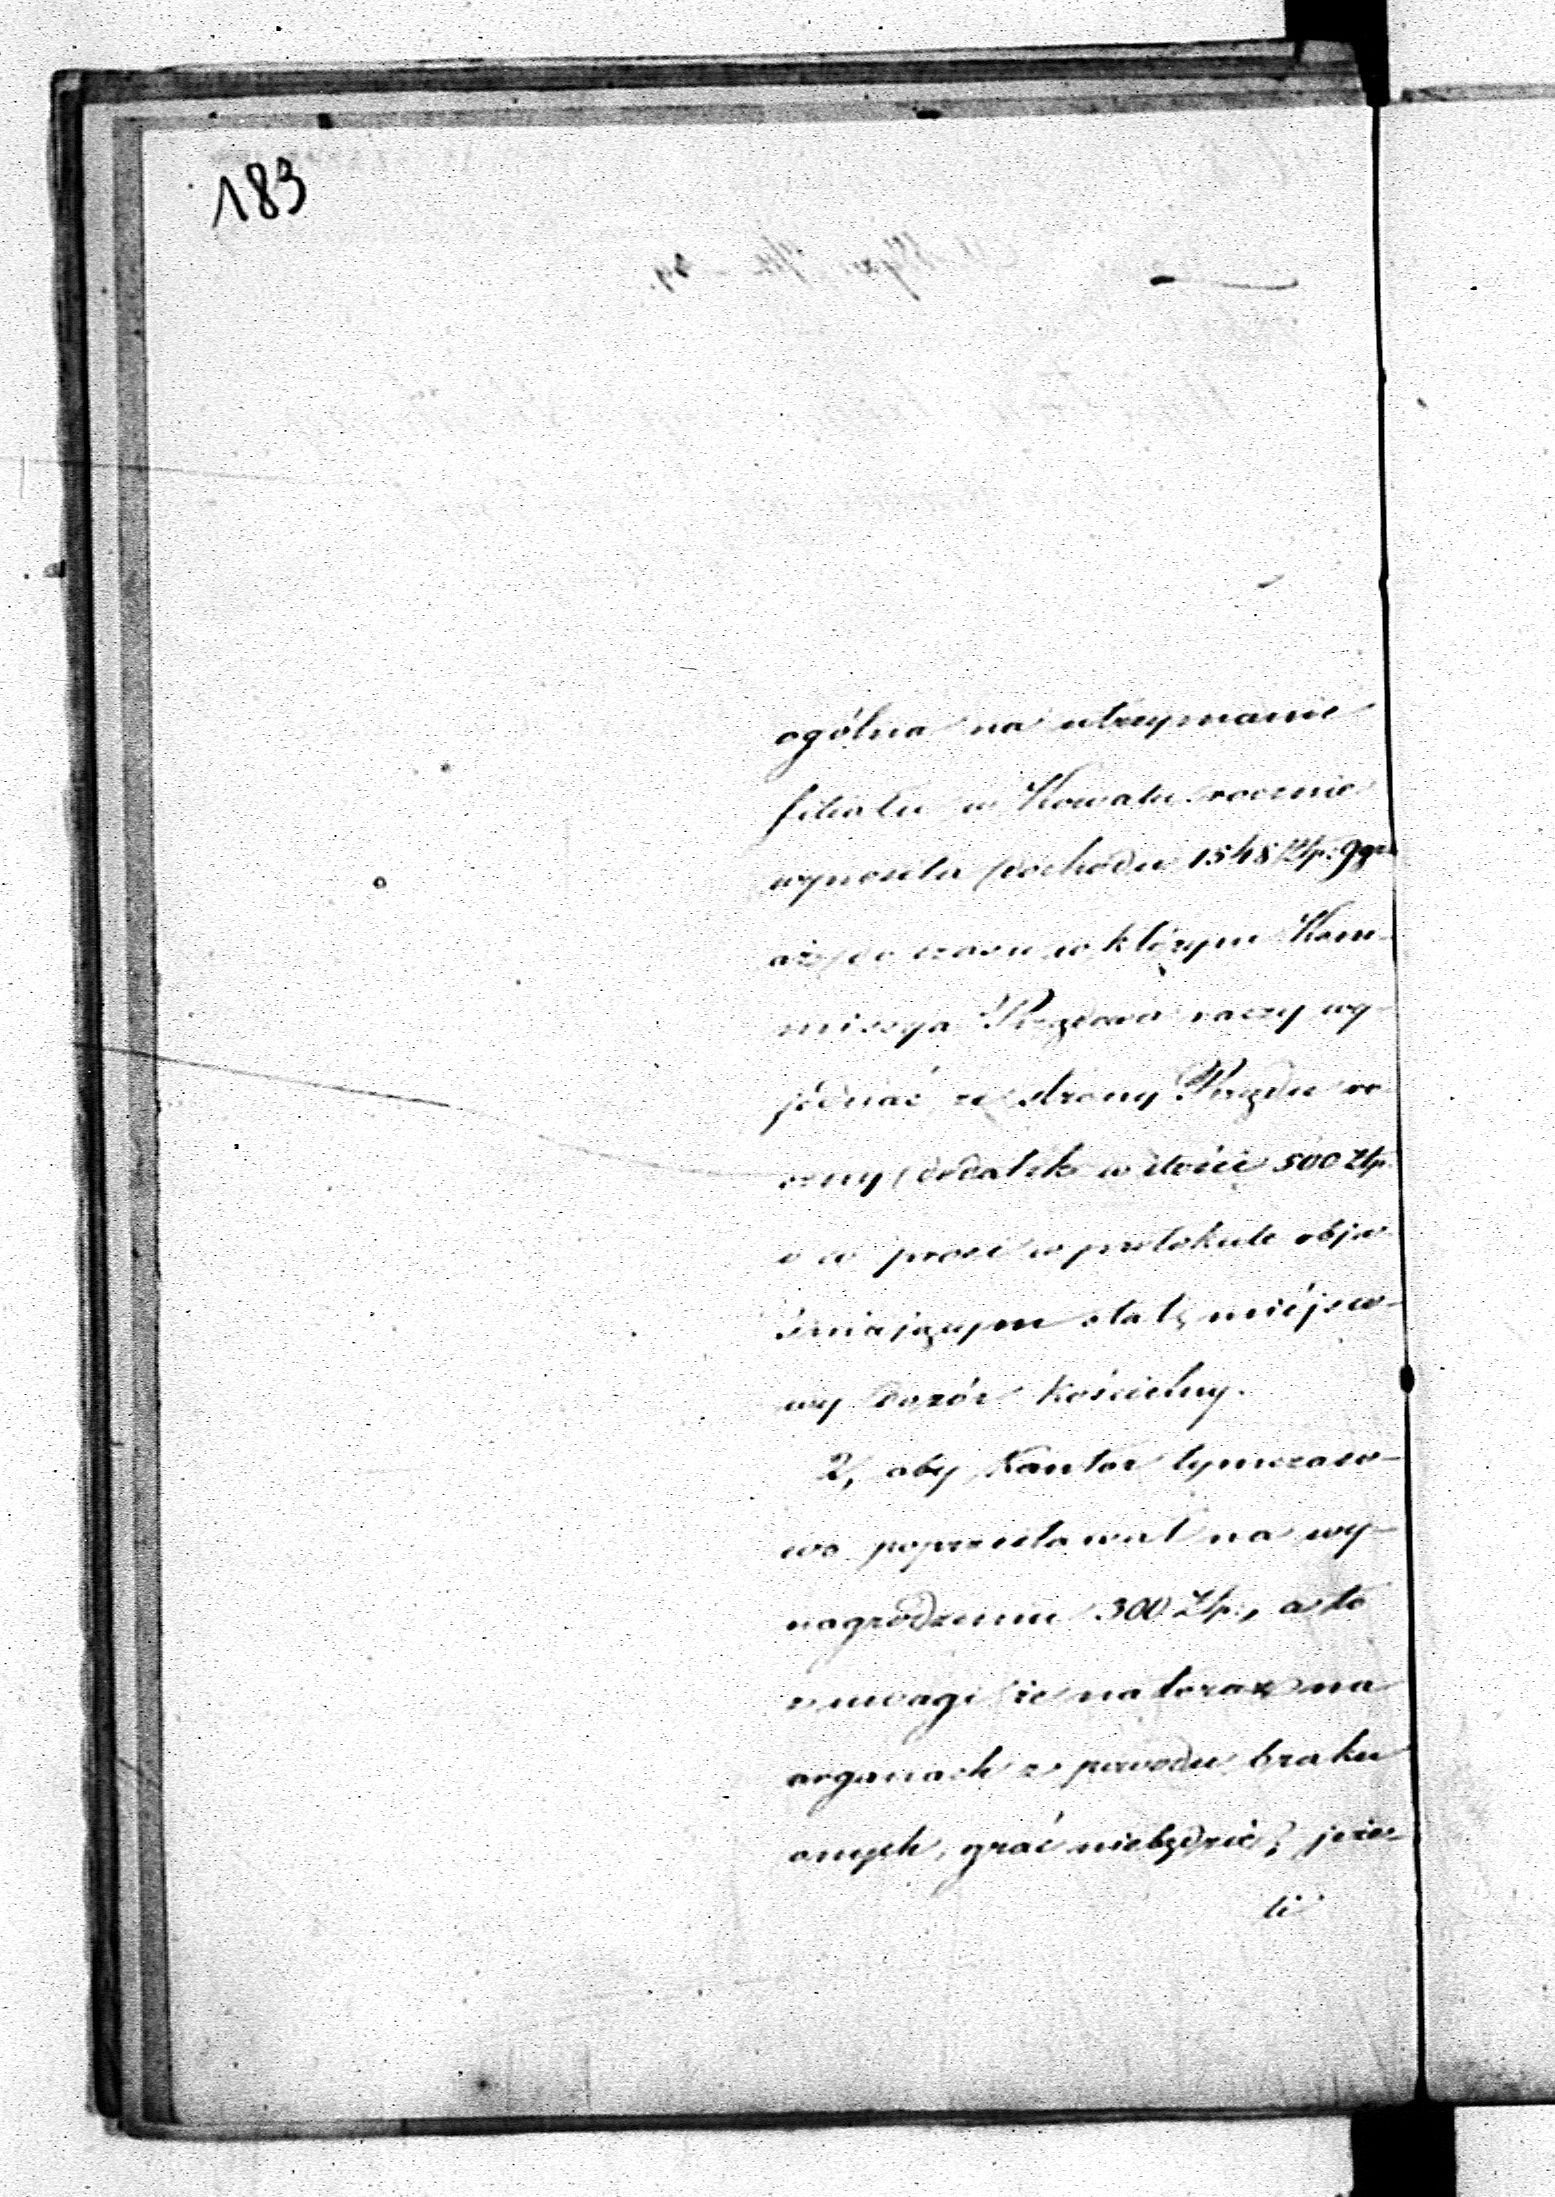 183
ogólna na utrzymanie
filiału w Kowalu rocznie
wynosiła dochodu 1548 Złp: 9 gr
aż do czasu w którym Kom-
missya Rządowa raczy wy-
jednać ze strony Rządu ro-
czny dodatek w ilości 500 Złp.
o co prosi w protokule obja-
śniającym etat, miéjsco-
wy dozór kościelny.
2, aby Kantor tymczaso-
wo poprzestawał na wy-
nagrodzeniu 300 Złp:, a to
z uwagi że na teraz na
organach z powodu braku
onych, grać niebędzie; jeże-
li